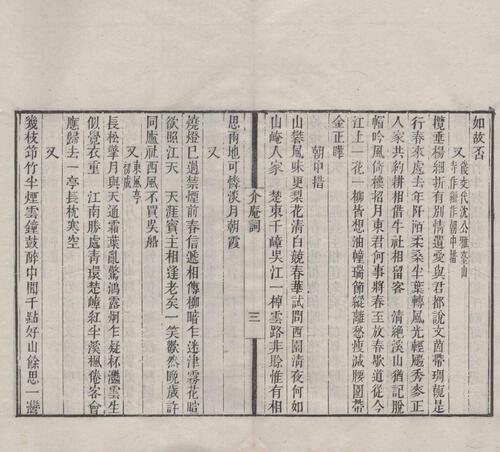 如故否
又 代沈公雅臺山
寺作繼作朝中措
攬垂楊細折有別情遺愛與君都說文茵帶是
行春來處去年阡陌柔桑半葉轉風光輕颺秀麥正
人家共約耕相借牛社相留客 清絶溪山猶記脫
帽吟風倚樓招月東君何事將春至故春歇道從今
江上一花一柳皆想油幢瑞節縱離愁瘦減腰圍帶
金正曄
朝中措
山礬風味更梨花清白競春華試問西園清夜何如
山崦人家 楚東千嶂吳江一棹雲路非賒惟有相
介庵詞 三
思兩地可憐溪月朝霞
又
燒燈已過禁煙前春信遞相傳柳暗乍迷津霧花暄
欲照江天 天涯賓主相逢老矣一笑歡然晚歲許
同廬社西風不買吳船
又 東風亭
初成
長松擎月與天通霜葉亂驚鴻露炯乍疑杯灩雲生
似覺衣重 江南勝處青環楚嶂紅半溪楓倦客會
應歸去一亭長枕寒空
又
幾枝筇竹半煙雲鐘鼓醉中聞千點好山餘思一灣